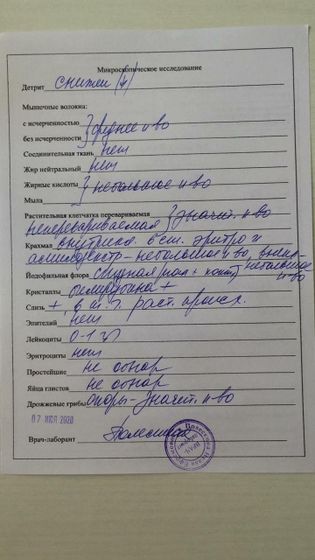 Микроскопическое исследование
Детрит снижен (+)
Мышечные волокна:
с исчерченностью } среднее к-во
без исчерченности
Соединительная ткань нет
Жир нейтральный нет
Жирные кислоты } небольшое к-во
Мыла
Растительная клетчатка перевариваемая } значит. к-во
неперевариваемая
Крахмал внутрикл. эритро и
амилодекстр - небольшое к-во,
Йодофильная флора скудная небольшое к-во
Кристаллы +
Слизь +, в т. ч. раст. происх.
Эпителий нет
Лейкоциты 0-1
Эритроциты нет
Простейшие не обнар
Яйца глистов не обнар
Дрожжевые грибы споры - значит. к-во
07 ИЮЛ 2020
Врач-лаборант